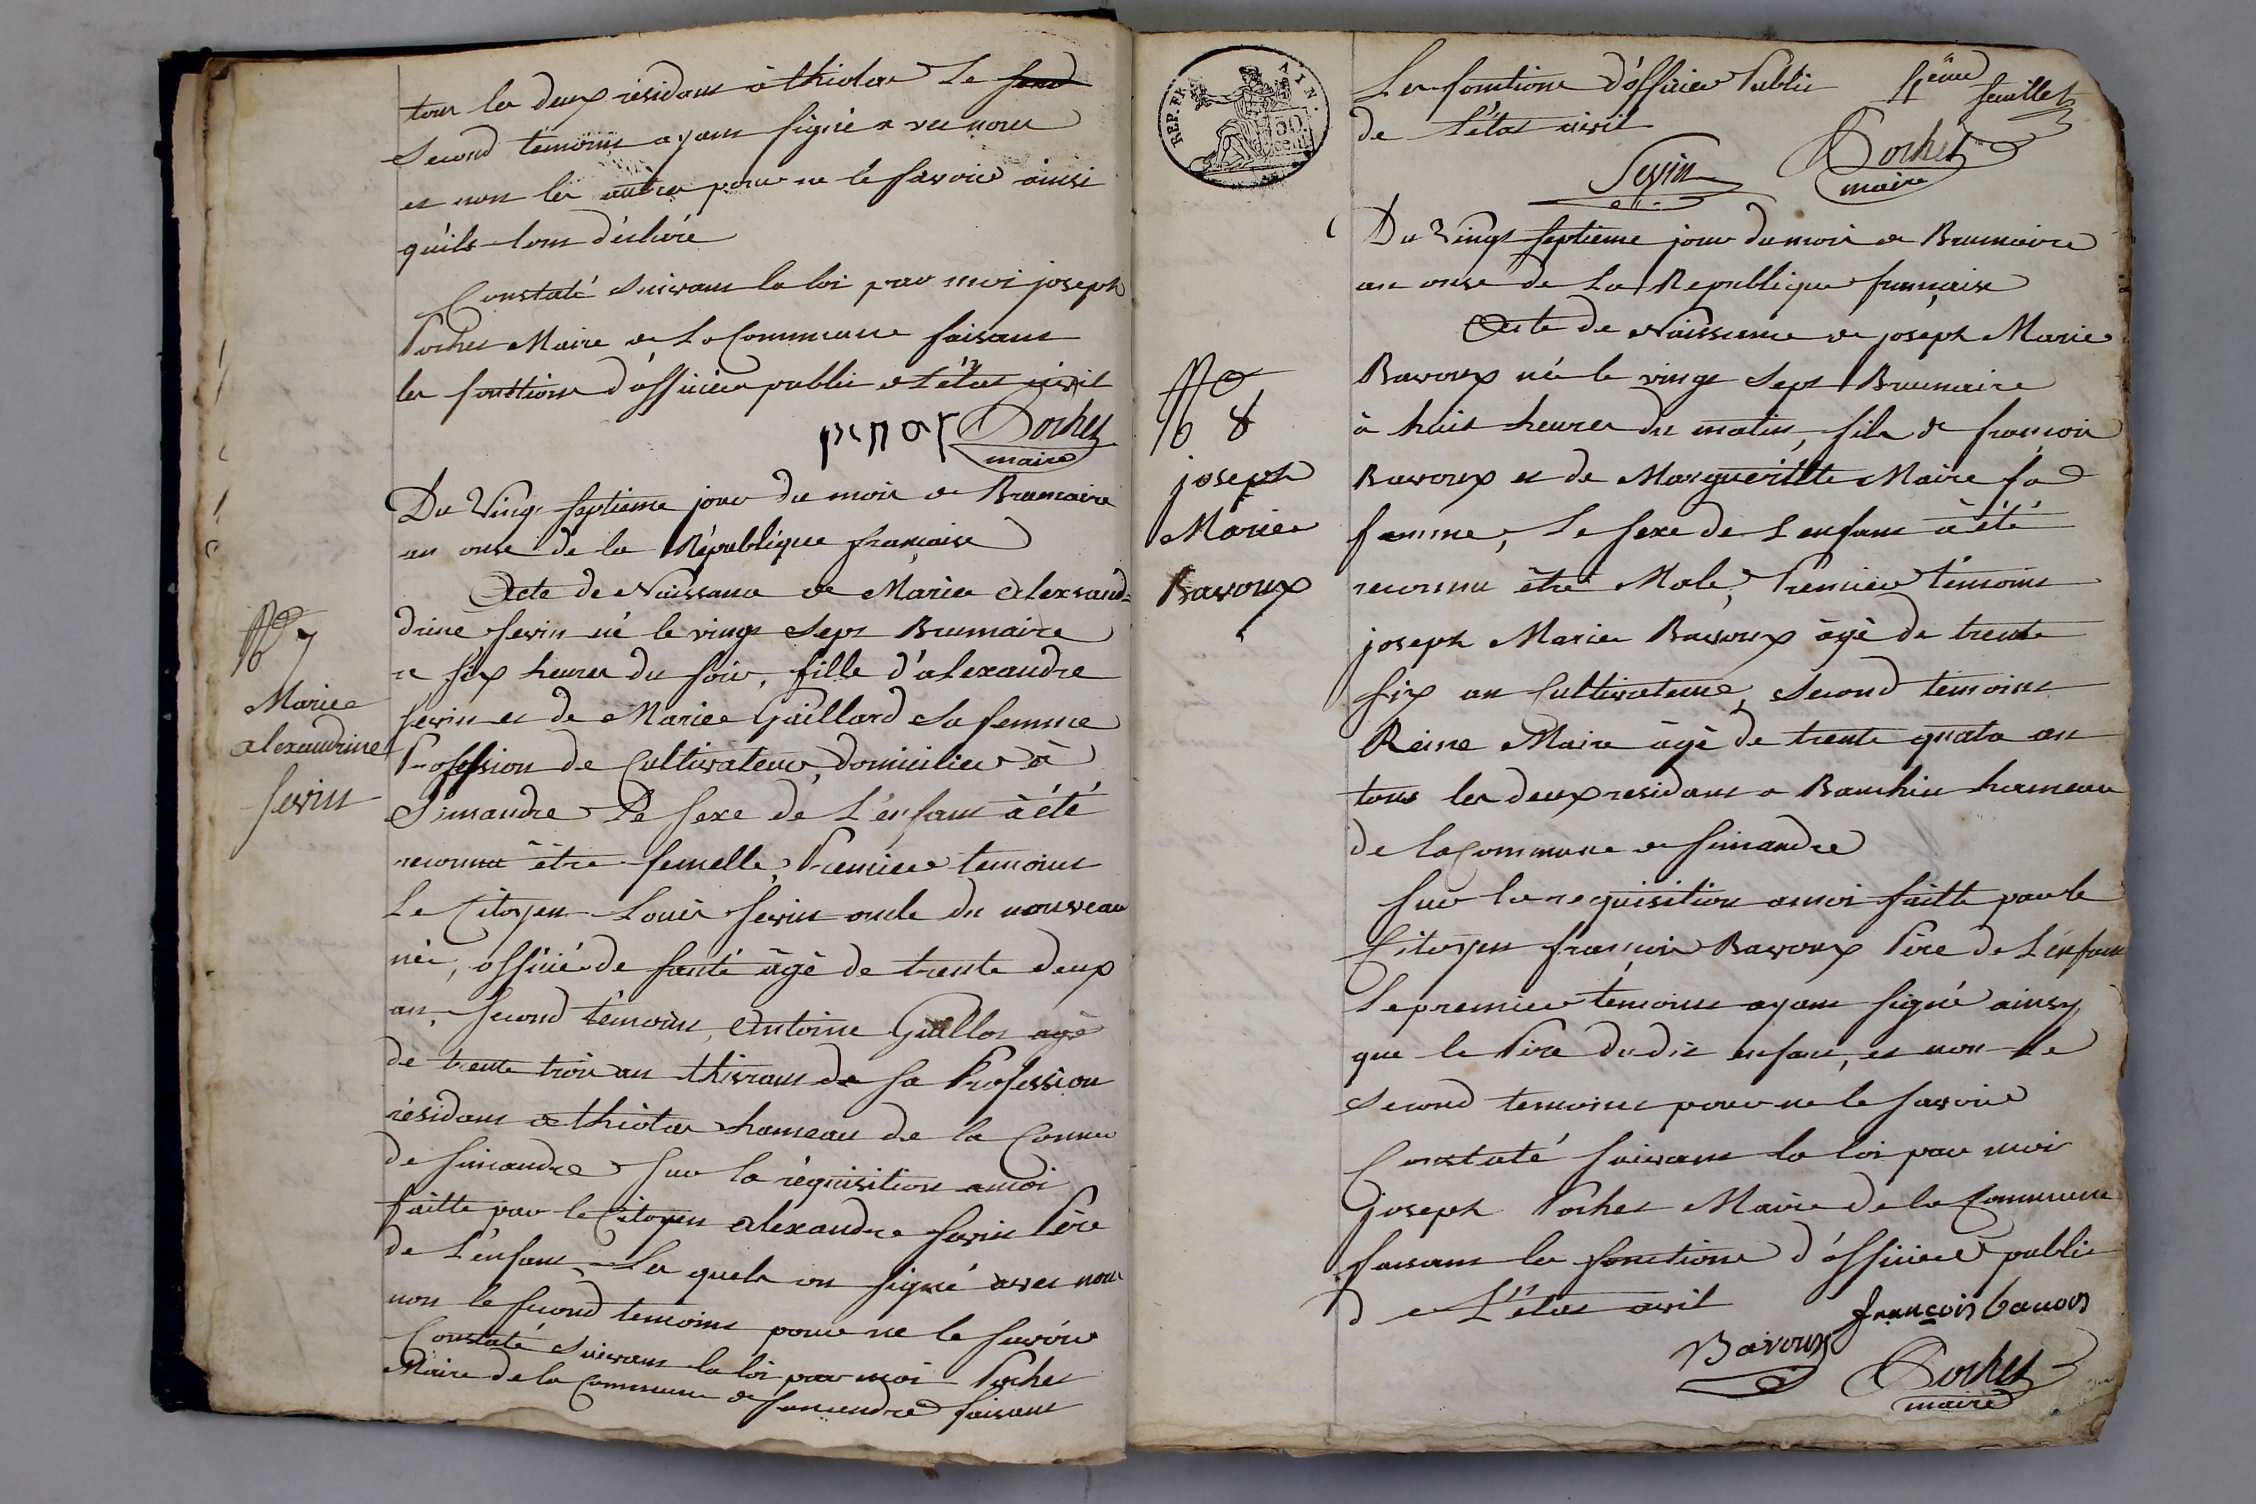 tous les deux résidans à thiolas Le
second témoins ayant signé a vec nous
et non les autres pour ne lé savoire ainsi
qu'ils lont déclaré
Constaté suivant la loi par moi joseph
Pochet Maire de La Commune faisant
les fonctions d'officier public de l'état civil
Pochet
maire
Du Vingt septieme jour du mois de Brumaire
an onse de la République francaise
Acte de Naissance de Marie Alexsand=
drine sevin né le vingt Sept Brumaire
a six heures du soir, fille d'alexandre
sevin et de Marie Gaillard sa femme
Profession de Cultivateur, domicilier à
Simandre Le sexe de L'enfant à été
reconnu être femelle, Premier temoins
Le Citoyen Louis sevin oncle du nouveau
née, officié de santé âgé de trente deux
an, second témoins, Antoine Guillot agé
de trente trois an thirant de sa Profession
résidant a thiolas hameau de la Comme
de simandre sur la réquisition a moi
faitte par le Citoyen alexandre sevin Père
de L'énfant, Les quels on signé avec nous
non le second temoins pour ne le savoir
Constaté suivant la loi par moi Pochet
Maire de la Commune de simandre faisant
No 7
Marie
alexandrine
sevin
REP. FRA
AIN.
50
cent
Les fonctions d'officier Public
de L'état civil
5eme
feuillet
Sevin
Pochet
maire
Du Vingt septieme jour du mois de Brumaire
an onse de La Republique francaise
Acte de Naissance de joseph Marie
Bavoux né le vingt Sept Brumaire
à huit heures du matin, fils de francois
Bavoux et de Marguerittte Maire sa
famme, Le sexe de L'enfant à été
reconnu être Male, Premier témoins
joseph Marie Bavoux àgé de trente
six an Cultivateur, Second temoins
Reine Maire âgé de trente quatre an
tous les deux residant a Banchin hameau
de la Commune de simandre
sur la requisition a moi faitte par le
Citoyen francois Bavoux Père de L'énfant
Le premier temoins ayant signé ainsy
que le Père du dit enfant, et non le
Second temoins pour ne le savoire
Constaté suivant la loi par moi
joseph Pochet Maire de la Commune
faisant les fonctions d'officier public
de L'état civil
françois bavoux
Bavoux
Pochet
maire
No 8
joseph
Marie
Bavoux